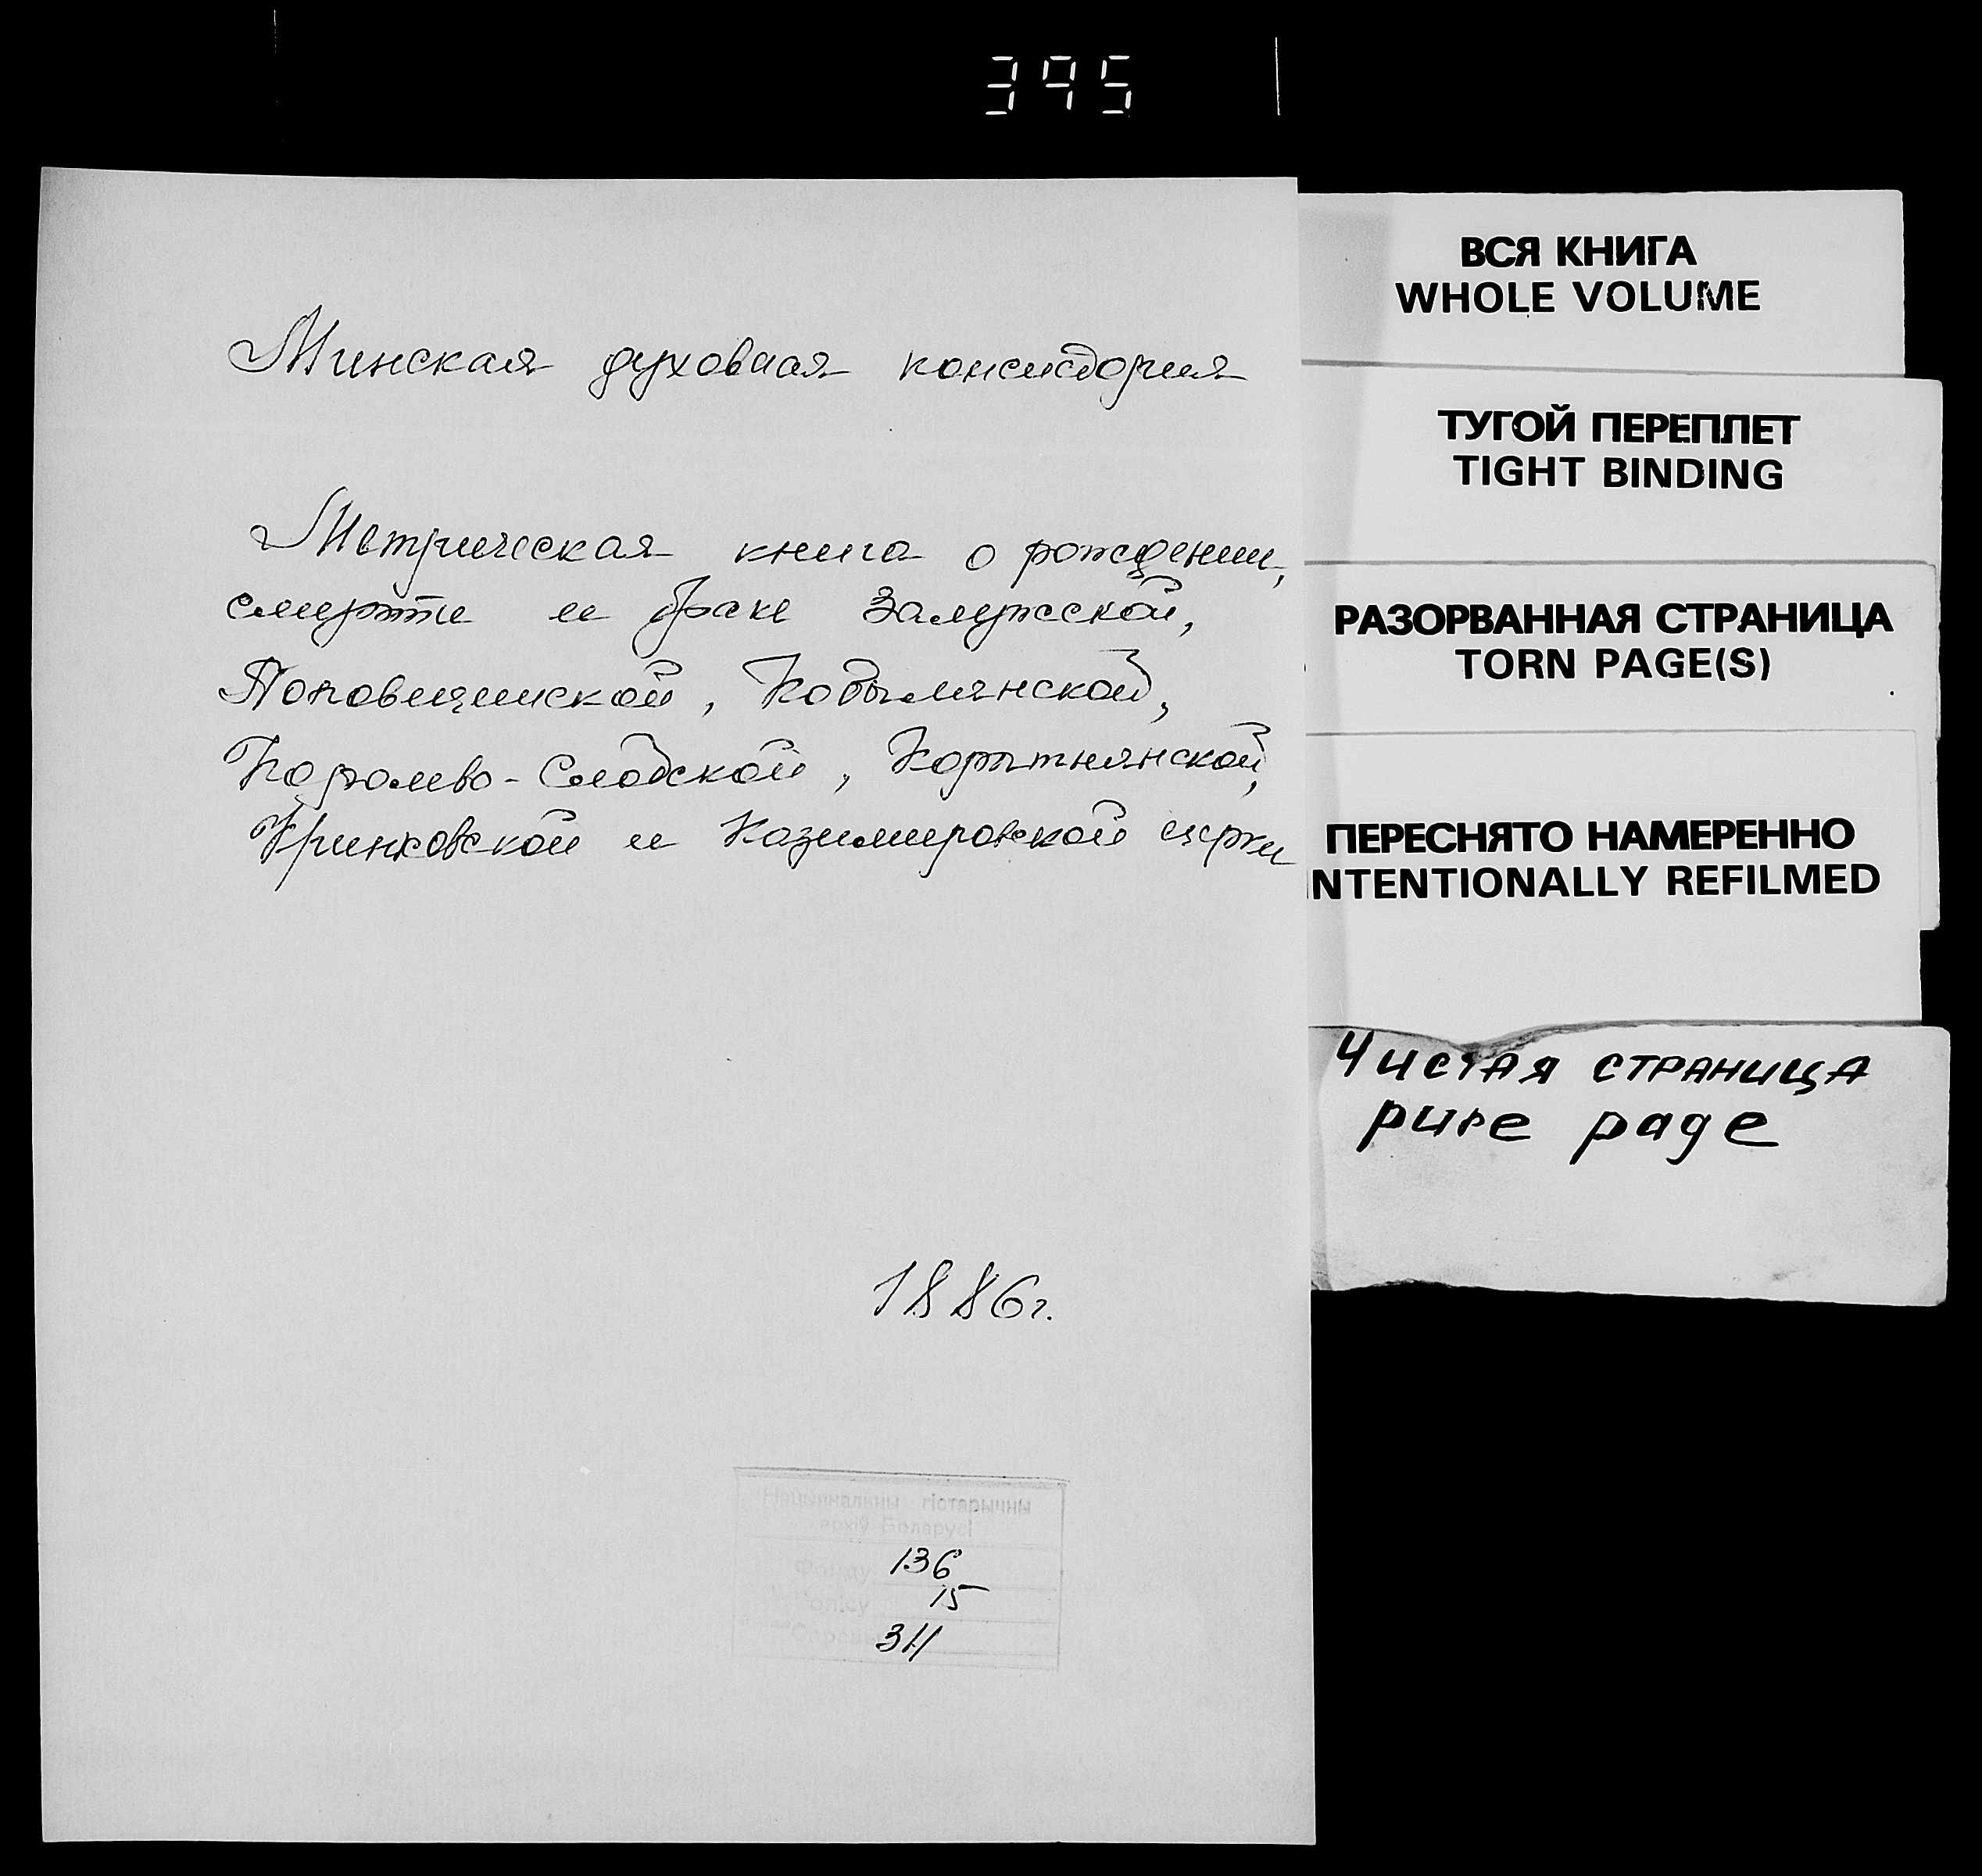 395
Минская духовная консистория
Метрическая книга о рождении,
смерти и браке Залужской,
Поповщинской, Кобылянской,
Королево-Слобской, Корытнянской,
Кринковской и Казимировской церкви
1886г.
Нацыянальны гістарычны
архіў Беларусі
Фонду 136
Вопісу 15
Справы 311
ВСЯ КНИГА
WHOLE VOLUME
ТУГОЙ ПЕРЕПЛЕТ
TIGHT BINDING
РАЗОРВАННАЯ СТРАНИЦА
TORN PAGE(S)
ПЕРЕСНЯТО НАМЕРЕННО
INTENTIONALLY REFILMED
Чистая страница
pure page